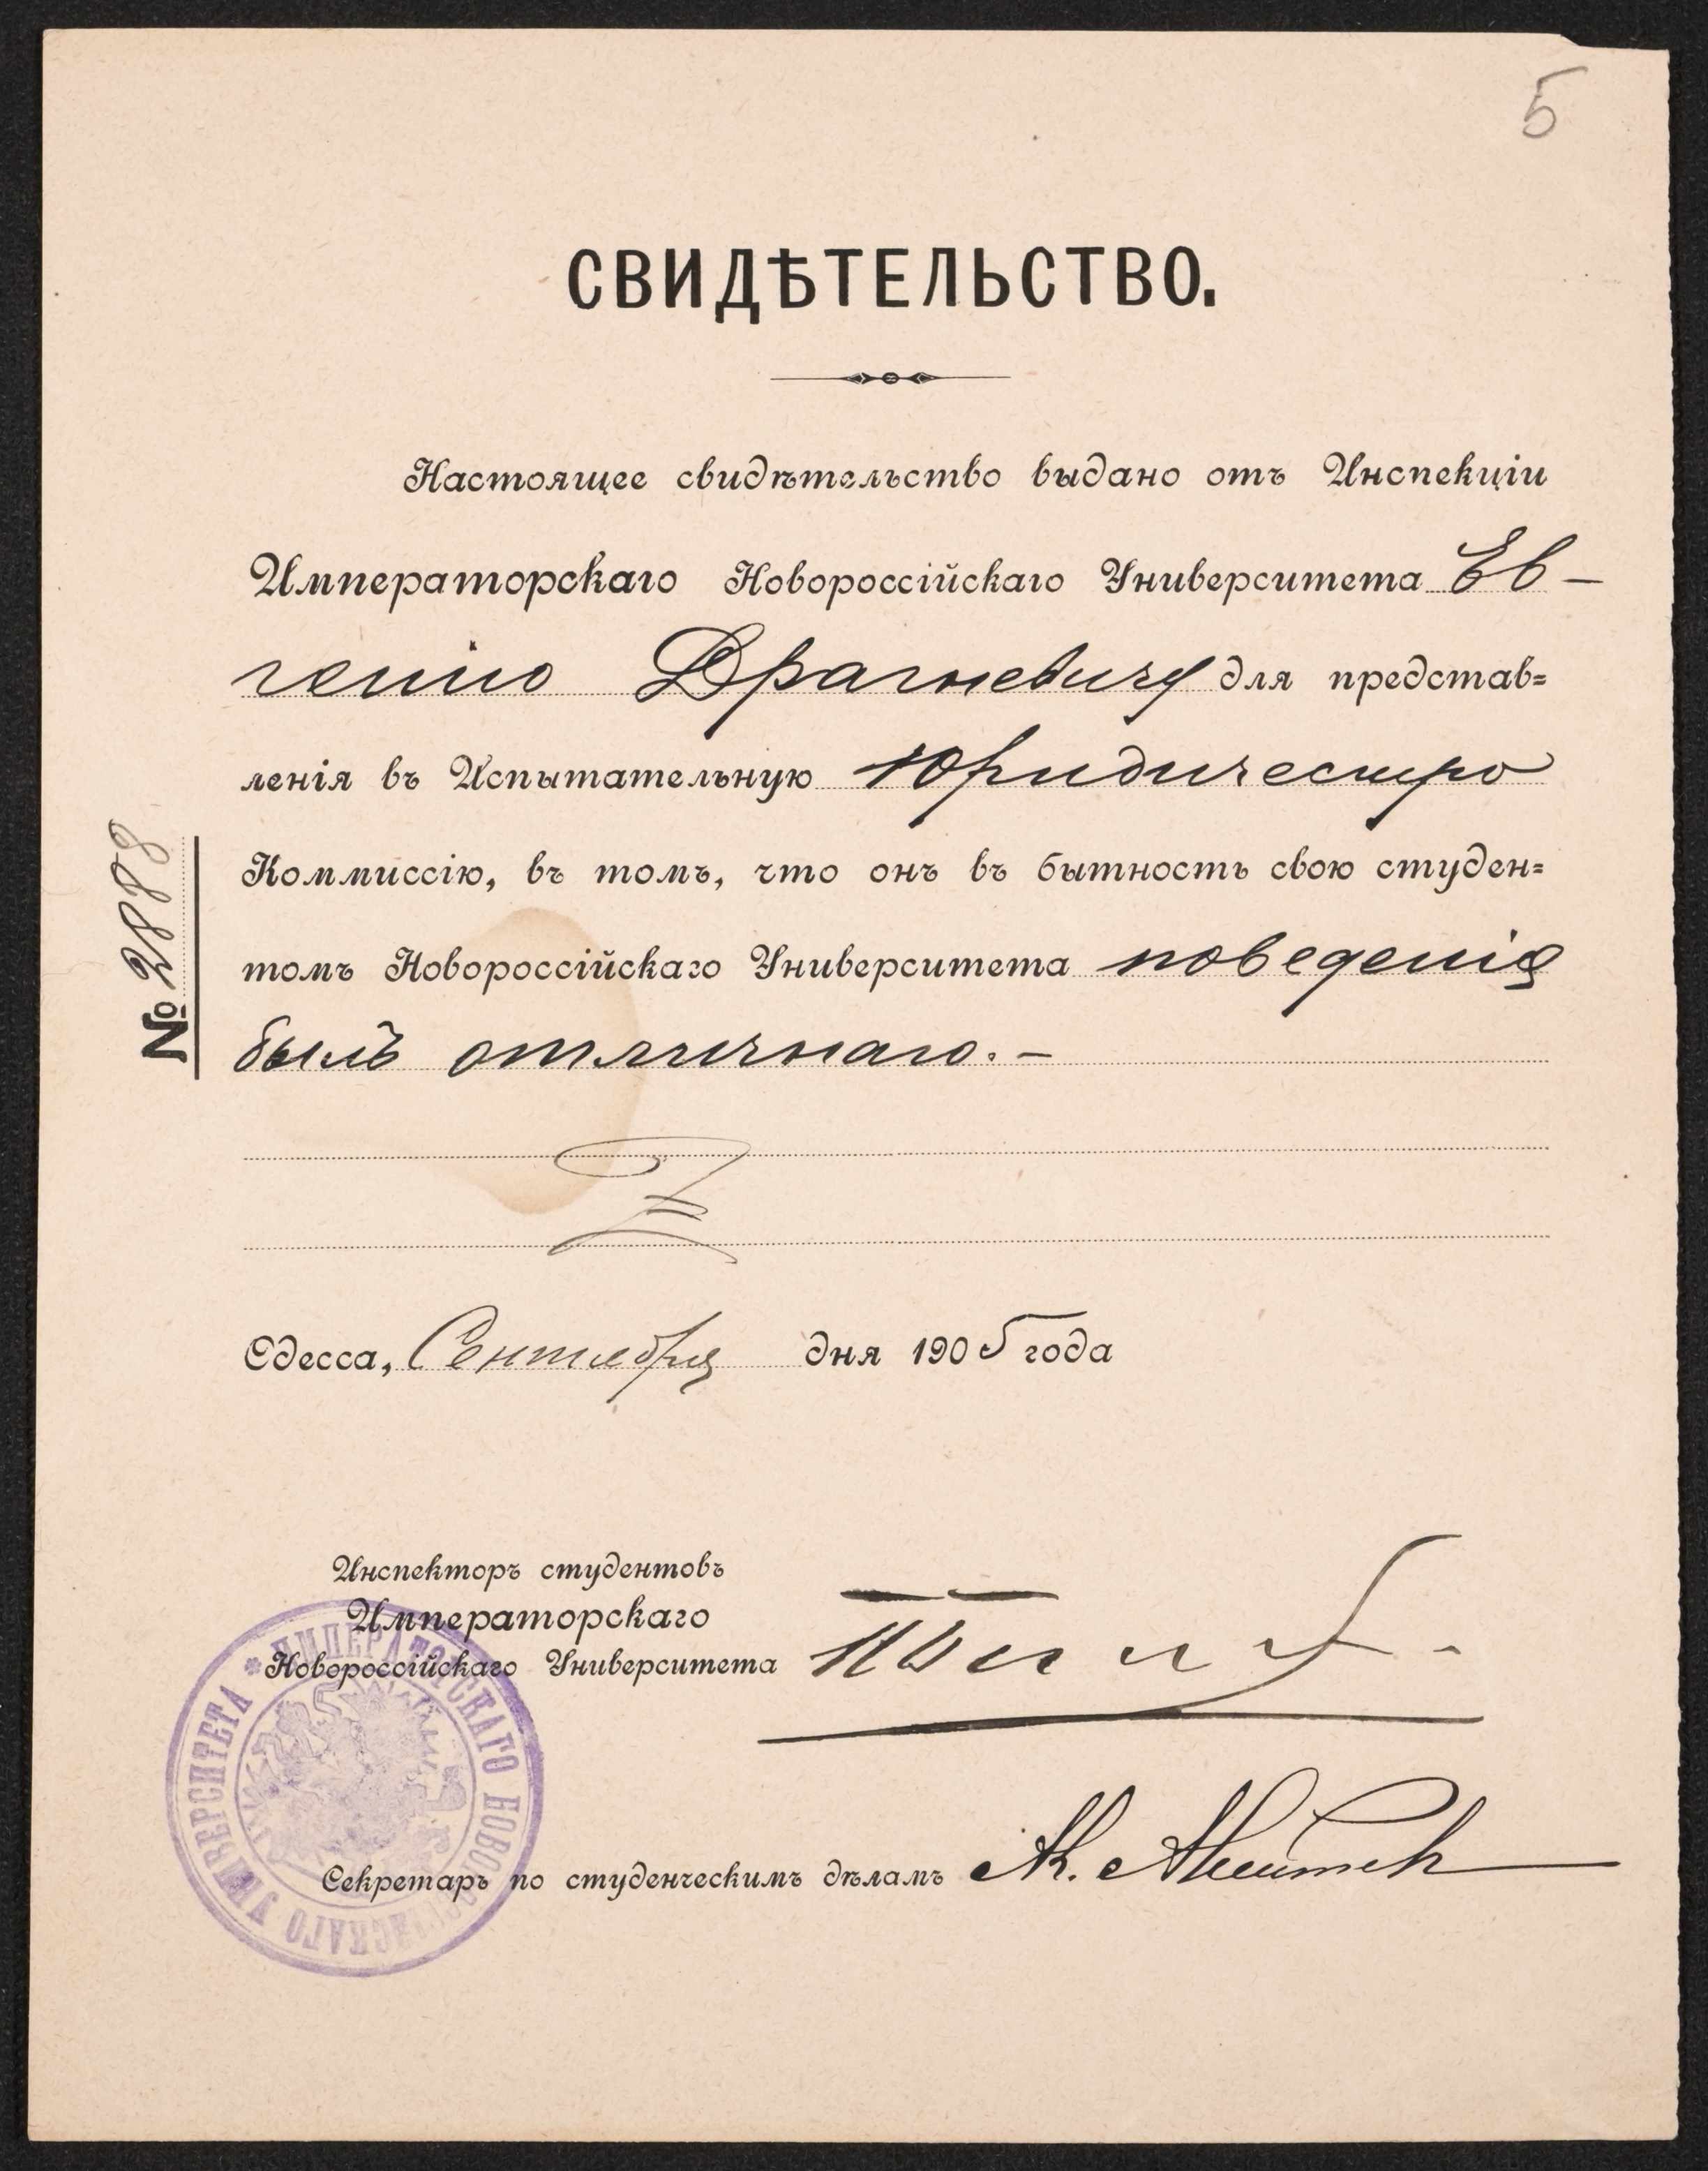 5
СВИДѢТЕЛЬСТВО.
Настоящее свидѣтельство выдано отъ Инспекціи
Императорскаго Новороссійскаго Университета Ев-
генію Драгневичу для представ=
ленія въ Испытательную Юридическую
Коммиссію, въ томъ, что онъ въ бытность свою студен=
томъ Новороссійскаго Университета поведенія
былъ отличнаго.-
№ 2888
Одесса, Сентября дня 1905 года
Инспекторъ студентовъ
Императорскаго
Новороссійскаго Университета
Секретарь по студенческимъ дѣламъ
ИМПЕРАТОРСКАГО НОВОРОССІЙСКАГО УНИВЕРСИТЕТА